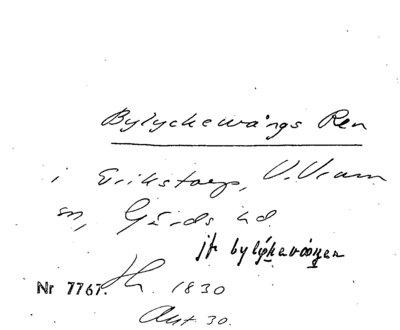 Bylyckewångs Ren
i Erikstorp, V. Vram
sn, Gärds hd
jfr bylýkavåŋen
Nr 7767. Hh. 1830
Akt. 30.